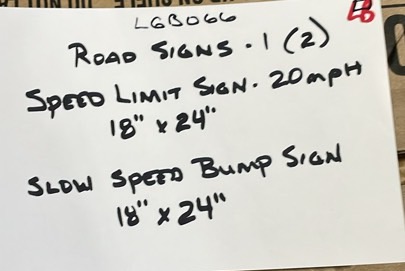 LGB066
ROAD SIGNS · 1 (2)
SPEED LIMIT SIGN · 20 mpH
18" x 24"
SLOW SPEED BUMP SIGN
18" x 24"